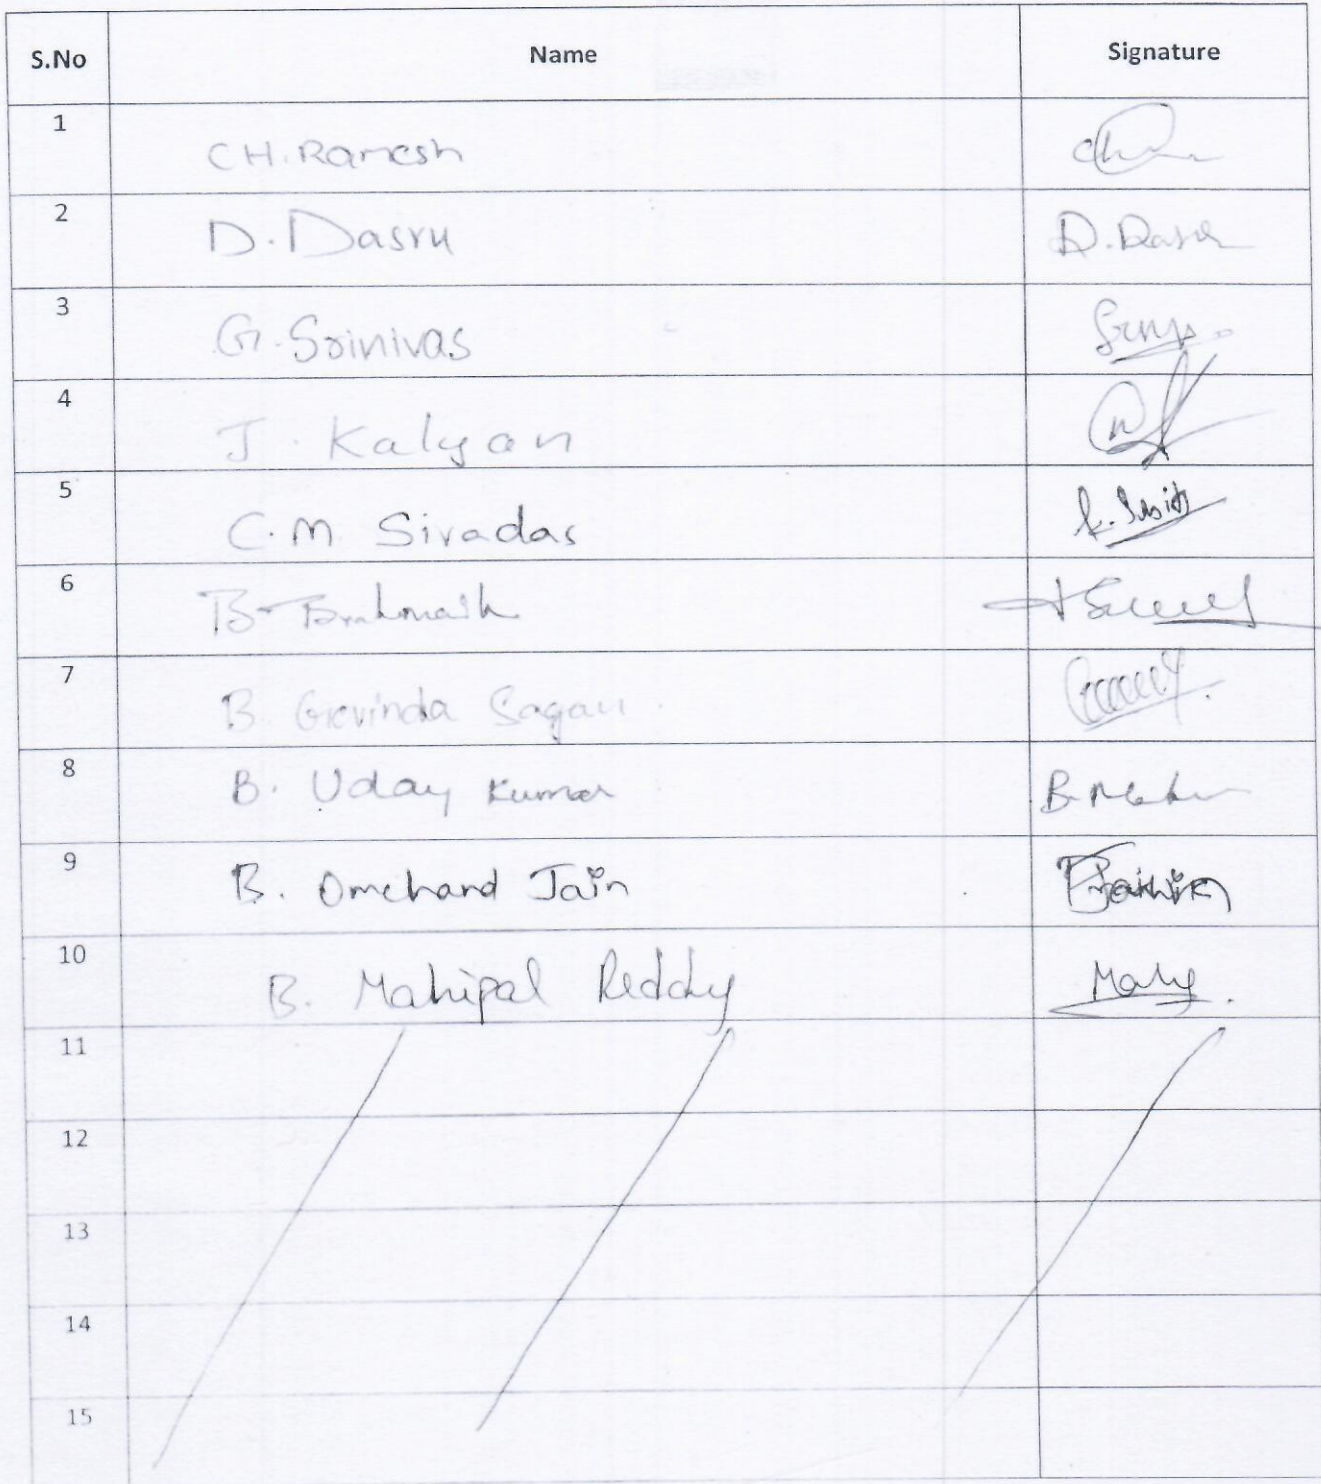 S.No Name Signature
1 CH.Ramesh
2 D. Dasru D. Dasru
3 G. Srinivas
4 J. Kalyan
5 C.M. Sivadas
6 B.
7 B Govinda Sagar
8 B. Uday Kumar
9 B. Omchand Jain
10 B. Mahipal Reddy
11
12
13
14
15